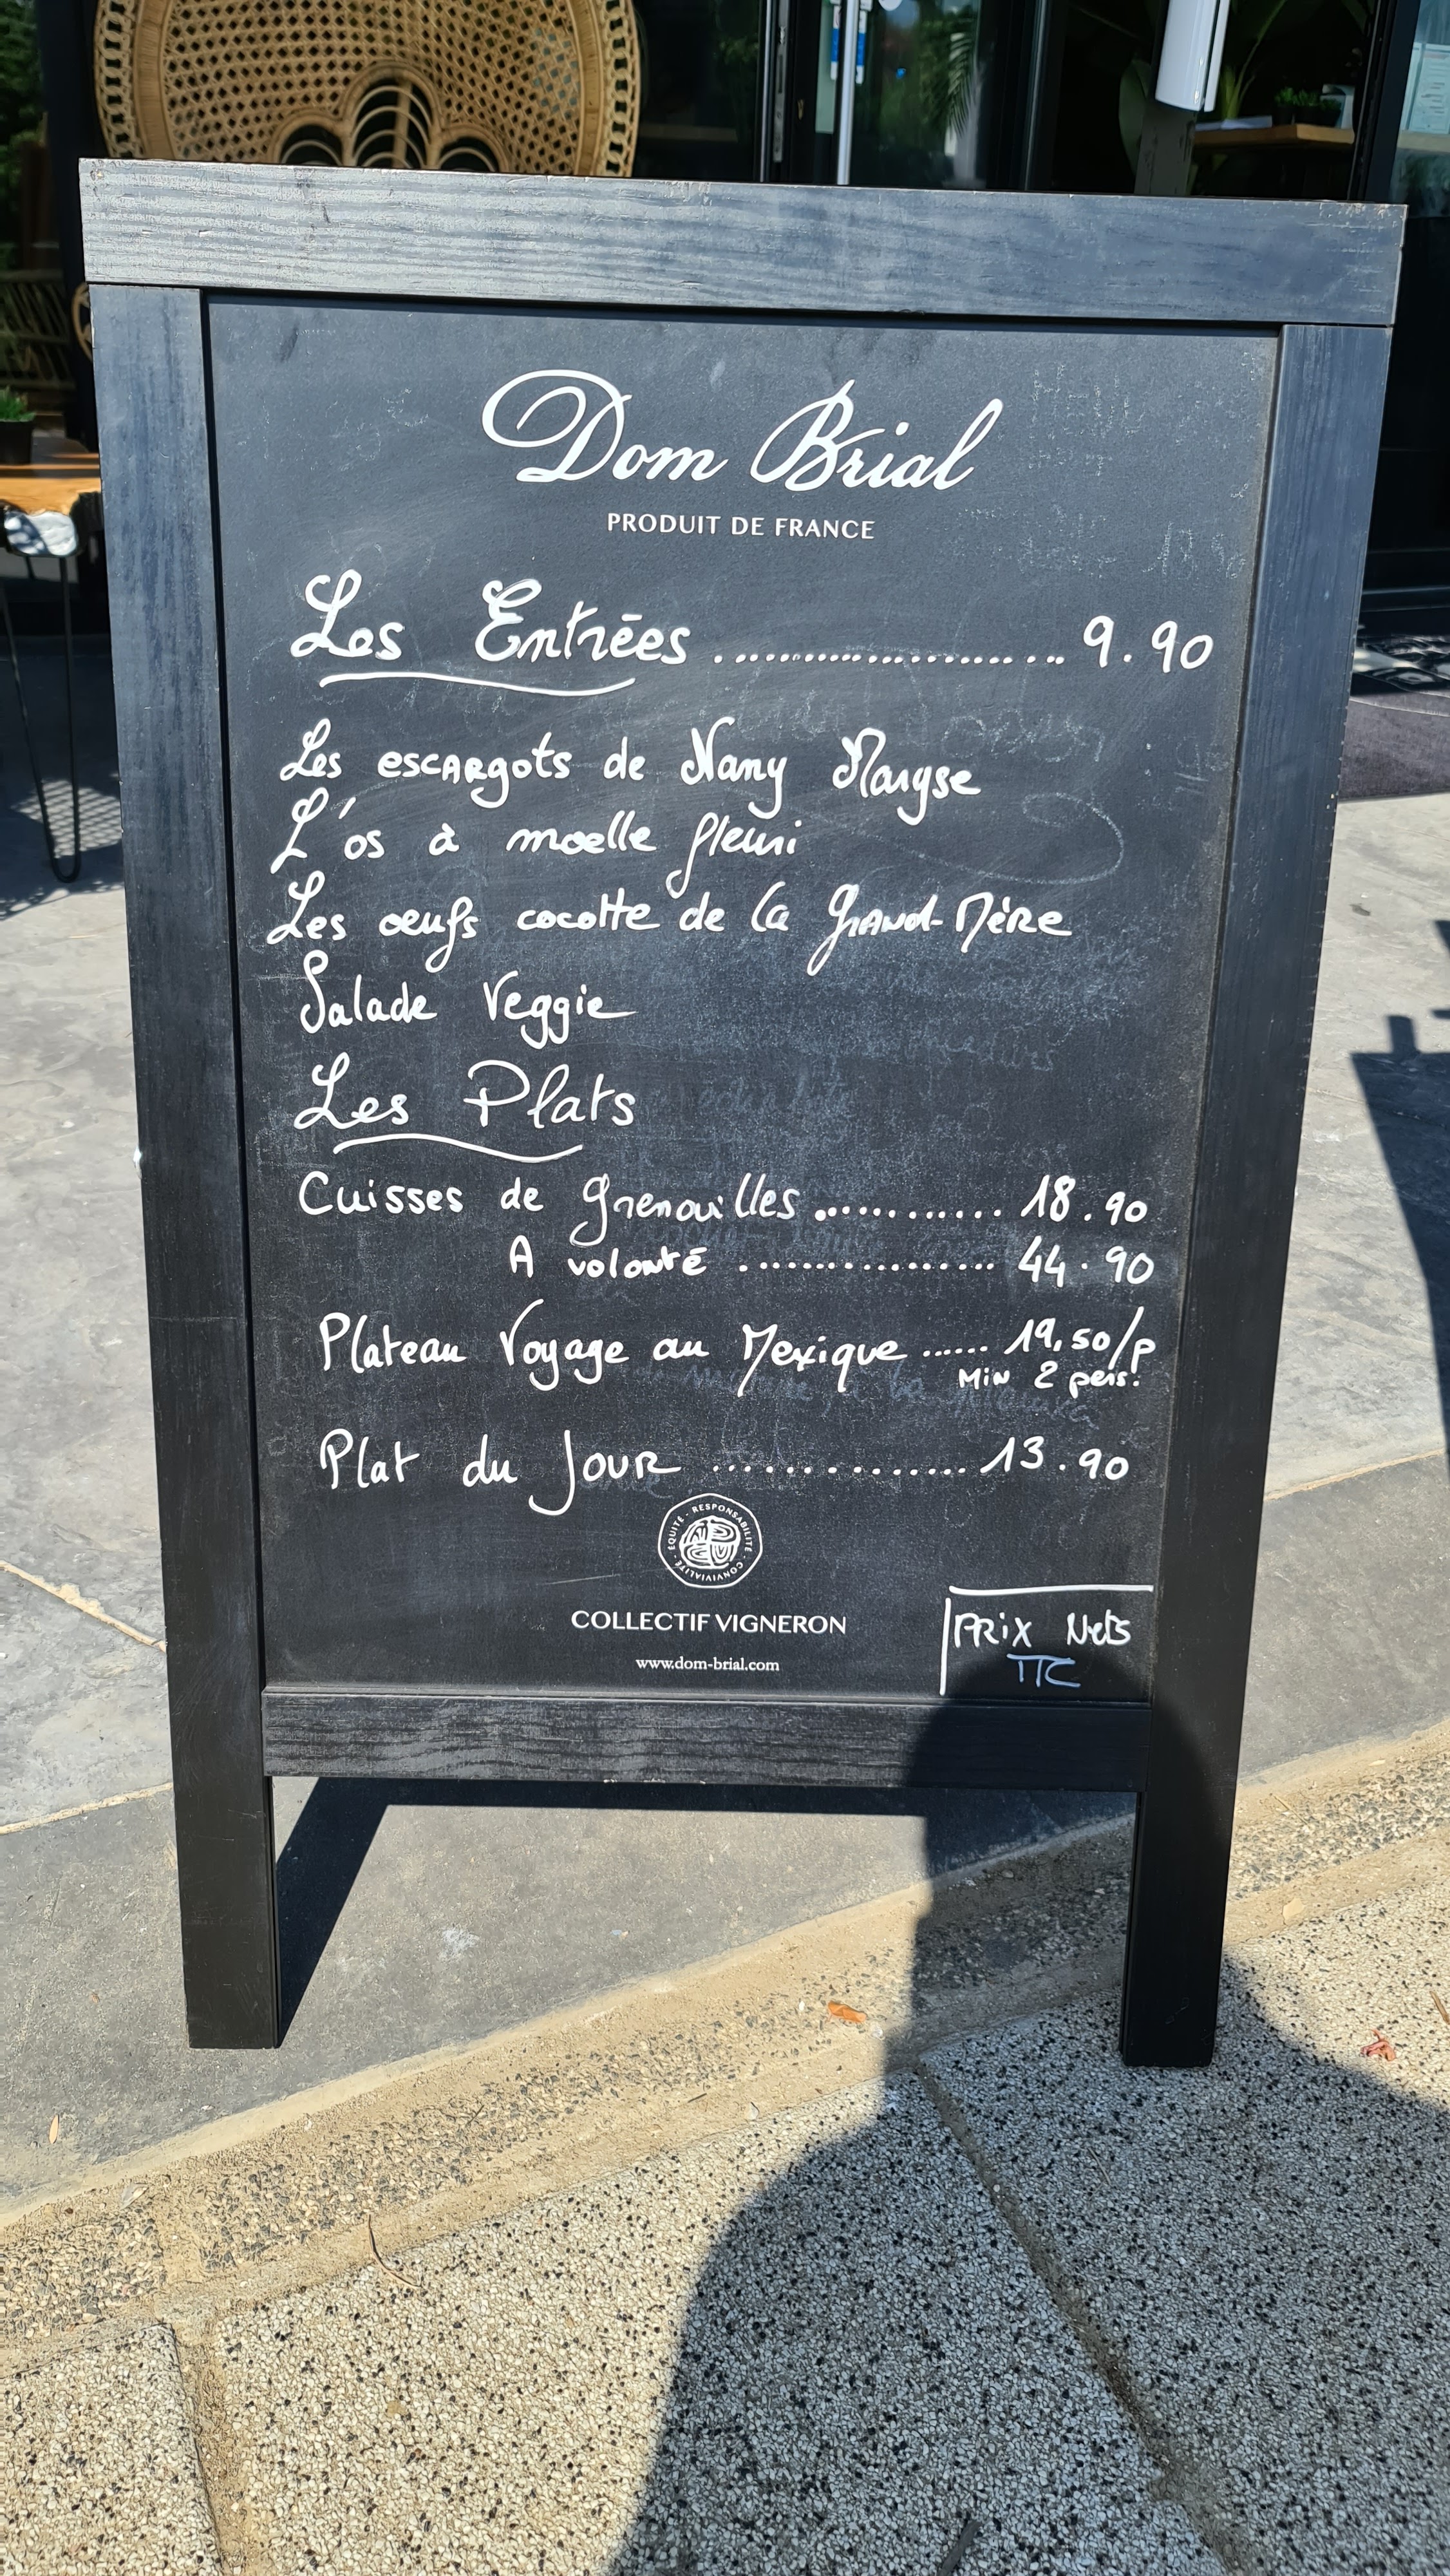 Dom Brial
PRODUIT DE FRANCE
Les Entrées .......................... 9.90
Les escargots de Nany Maryse
L'os à moelle fleuri
Les oeufs cocotte de la Grand-Mère
Salade Veggie
Les Plats
Cuisses de grenouilles ............ 18.90
A volonté .................. 44.90
Plateau Voyage au Mexique ...... 19,50/p
Min 2 pers.
Plat du Jour ............... 13.90
ÉQUITÉ - RESPONSABILITÉ - CONVIVIALITÉ -
COLLECTIF VIGNERON
www.dom-brial.com
PRIX Nets
TTC